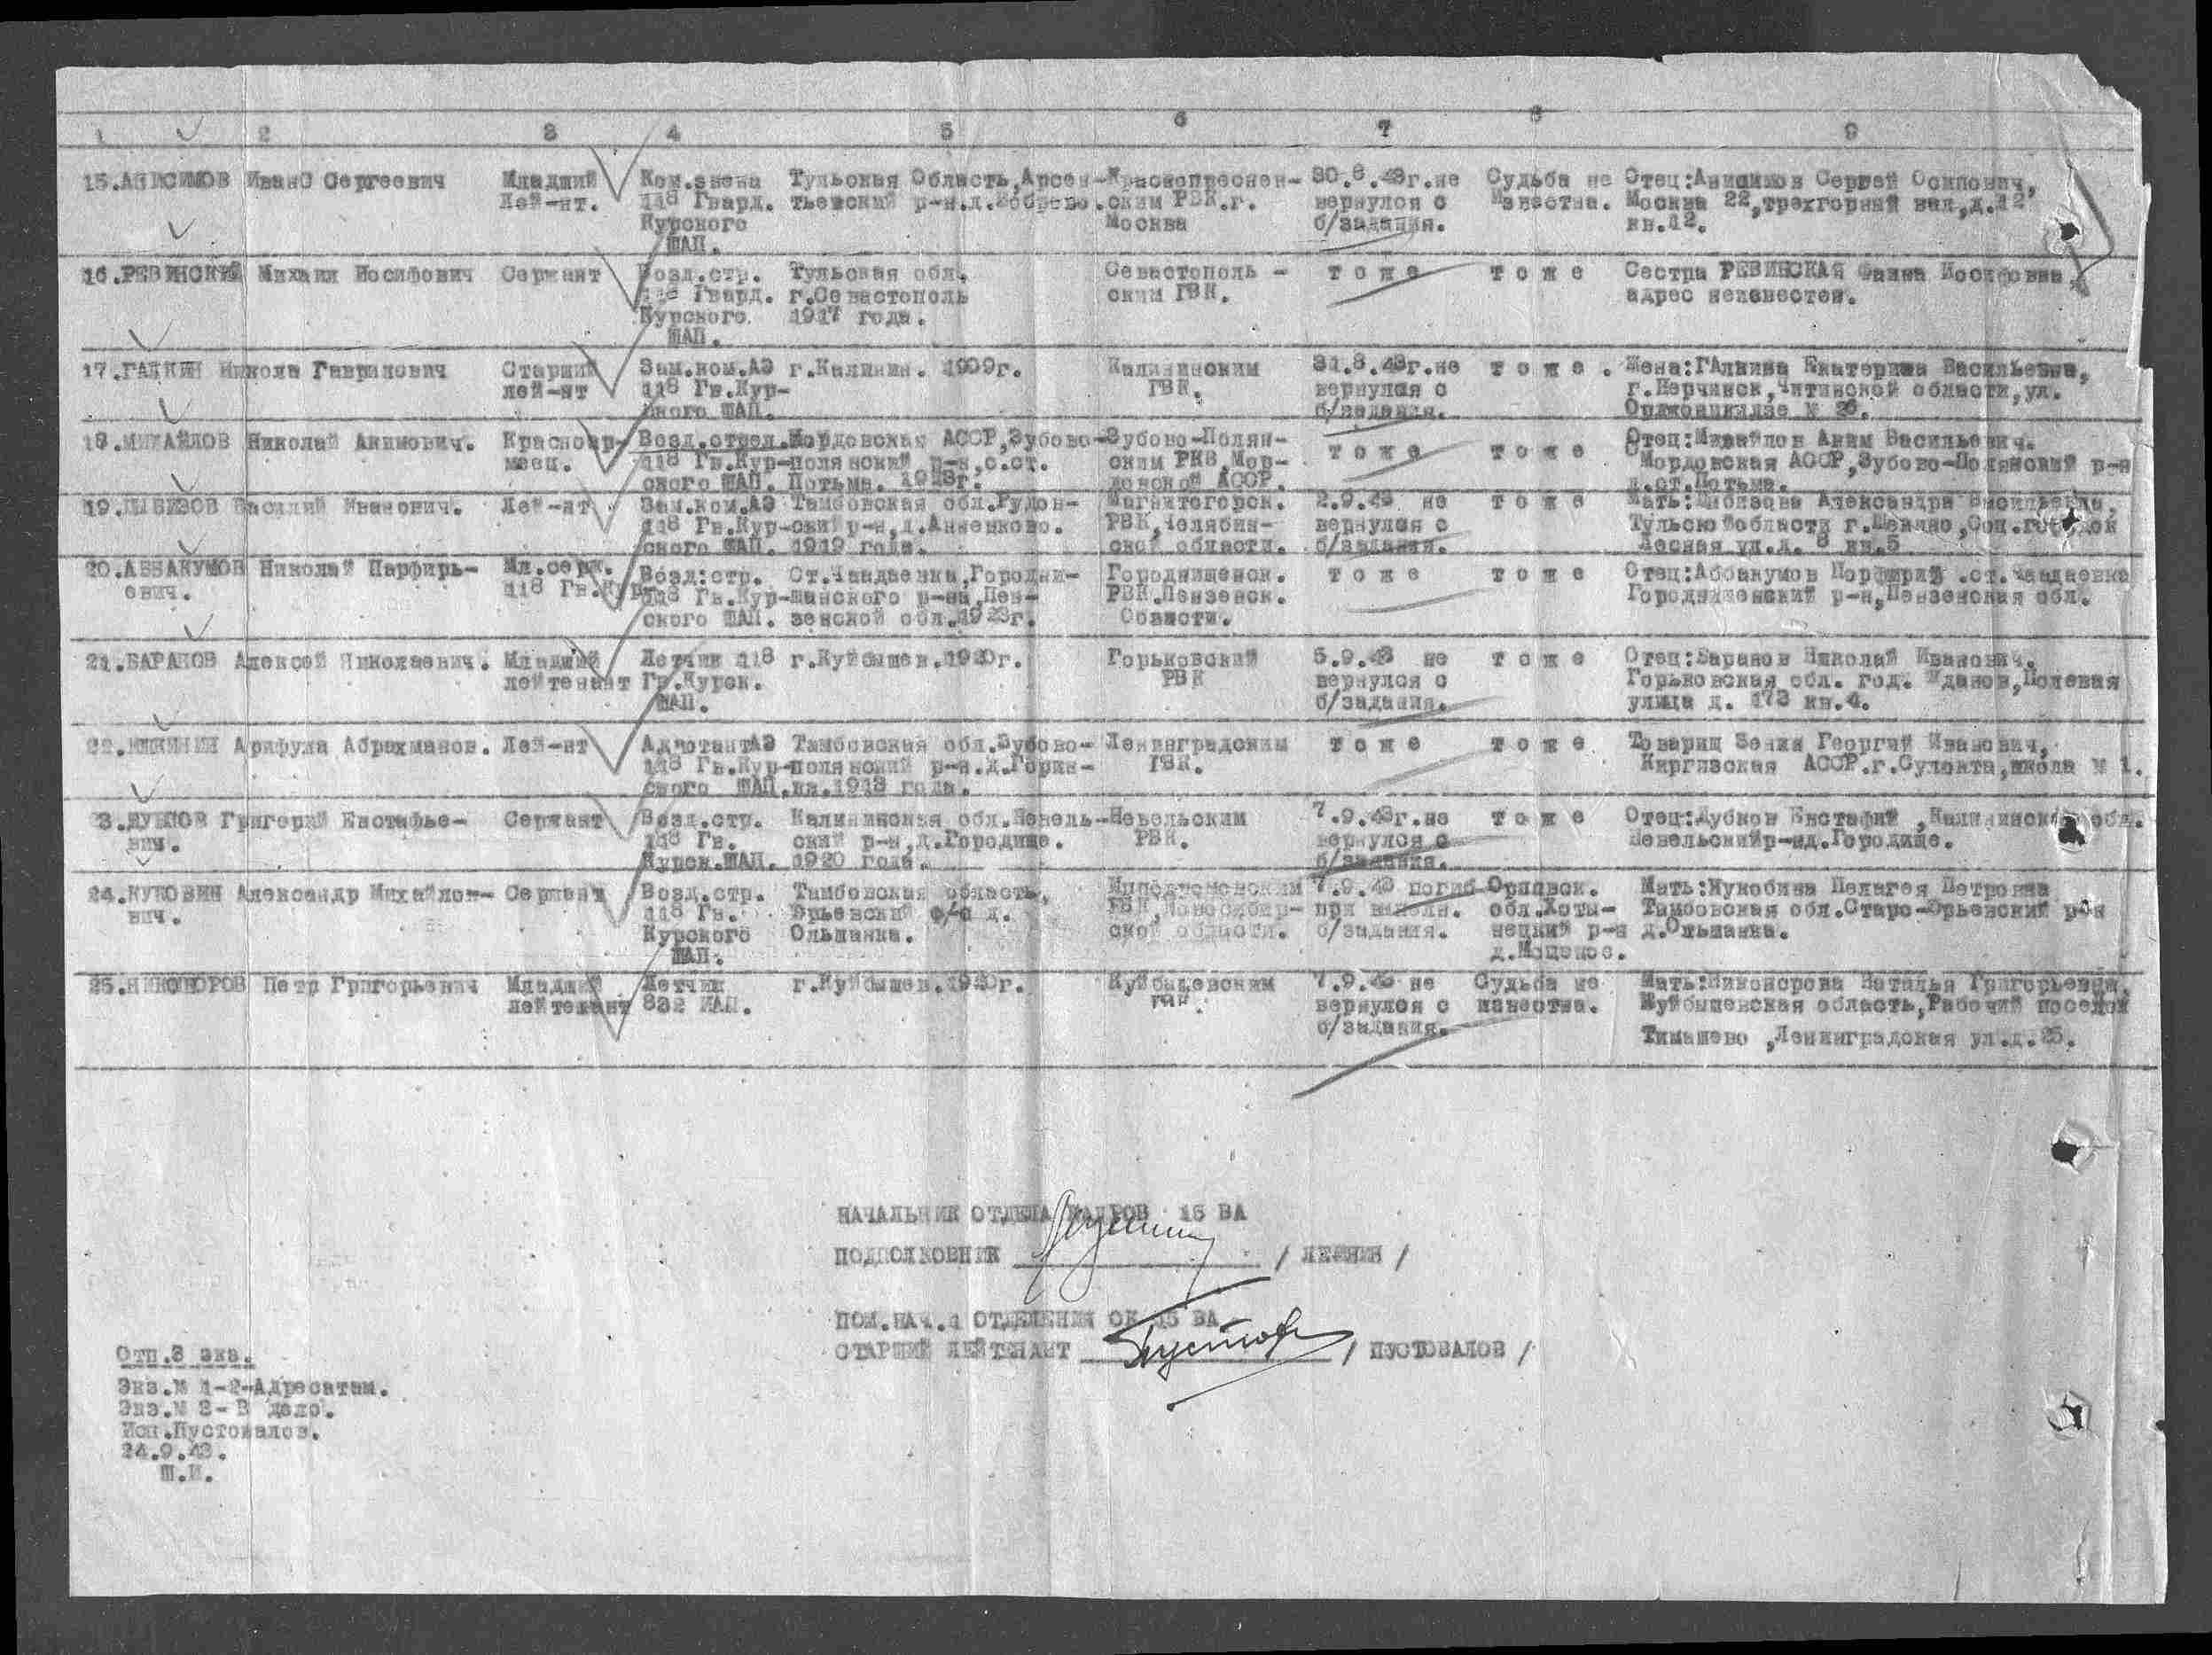 1 2 3 4 5 6 7 8 9
15.АНИСИМОВ Иван Сергеевич Младший Ком.звена Тульская Область,Арсен- Краснопреснен- 30.8.43г.не Судьба не Отец:Анисимов Сергей Осипович,
лей-нт. 118 Гвард. тьевский р-н.д. ским РВК.г. вернулся с известна. Москва 22,трехгорный вал,д.12
Курского Москва б/задания. кв.12.
ШАП.
16.РЕВИНСКИЙ Михаил Иосифович Сержант Возд.стр. Тульская обл. Севастополь - т о ж е т о ж е Сестра РЕВИНСКАЯ Фаина Иосифовна
118 Гвард. г.Севастополь ским ГВК. адрес неизвестен.
Курского 1917 года.
ШАП.
17.ГАЛКИН Никола Гаврилович Старший Зам.ком.АЭ г.Калинин. 1909г. Калининским 31.8.43г.не т о ж е . Жена:ГАлкина Екатерина Васильевна,
лей-нт 118 Гв.Кур- ГВК. вернулся с г.Нерчинск,Читинской области,ул.
ского ШАП. б/задания. Орджоникидзе № 26.
18.МИХАЙЛОВ Николай Акимович. Красноар- Возд.стрел. Мордовская АССР,Зубово- Зубово-Полян- т о ж е т о ж е Отец:Михайлов Аким Васильевич.
меец. 118 Гв.Кур- полянский р-н,с.ст. ским РКВ,Мор- Мордовская АССР,Зубово-Полянский р-н
ского ШАП. Потьма. 1923г. довской АССР. с.ст.Потьма.
19. Василий Иванович. Лей-нт Зам.ком.АЭ Тамбовская обл.Рудов- Магнитогорск. 2.9.43 не т о ж е Мать: Александра Васильевна,
118 Гв.Кур- ский р-н,д.Анненково. РВК,Челябин- вернулся с Тульской области г.Щекино,Соц.городок
ского ШАП. 1919 года. ской области. б/задания. Лесная ул.д. 8 кв.5
20.АББАКУМОВ Николай Парфирь- Мл.серж. Возд:стр. Ст.Чаадаевка,Городи- Городищенск. т о ж е т о ж е Отец:Аббакумов Порфирий .ст.Чаадаевка
ович. 118 Гв.Кур- 118 Гв.Кур- щанского р-на,Пен- РВК.Пензенск. Городищенский р-н,Пензенская обл.
ского ШАП. зенской обл.1923г. Области.
21.БАРАНОВ Алексей Николаевич. Младший Летчик 118 г.Куйбышев.1920г. Горьковский 5.9.43 не т о ж е Отец:Баранов Николай Иванович.
лейтенант Гв.Курск. РВК вернулся с Горьковская обл. гор. Жданов,Полевая
ШАП. б/задания. улица д. 173 кв.4.
22. Арифула Абрахманов. Лей-нт АдъютантАЭ Тамбовская обл.Зубово- Ленинградским т о ж е т о ж е Товарищ Зенин Георгий Иванович,
118 Гв.Кур- полянский р-н.д.Горин- ГВК. Киргизская АССР.г.Сулюкта,школа № 1.
ского ШАП. ки.1918 года.
3.ДУБКОВ Григорий Евстафье- Сержант Возд.стр. Калининская обл.Невель- Невельским 7.9.43г.не т о ж е Отец:Дубков Евстафий ,Калининская обл.
вич. 118 Гв. ский р-н,д.Городище. РВК. вернулся с Невельскийр-нд.Городище.
Курск.ШАП. 1920 года. б/задания.
24.КУКОВИН Александр Михайлов- Сержант Возд.стр. Тамбовская область, 7.9.43 погиб Орловск. Мать:Кукобина Пелагея Петровна
вич. 118 Гв. Юрьевский р-н д. РВК,Новосибир- при выполн. обл.Хоты- Тамбовская обл.Старо-Юрьевский р-н
Курского Ольшанка. ской области. б/задания. нецкий р-н д.Ольшанка.
ШАП.
25.НИКОНОРОВ Петр Григорьевич Младший Летчик г.Куйбышев.1920г. Куйбышевским 7.9.43 не Судьба не Мать:Никонорова Наталья Григорьевна,
лейтенант 832 ИАП. ГВК. вернулся с известна. Куйбышевская область,Рабочий поселок
б/задания. Тимашево ,Ленинградская ул.д.25.
НАЧАЛЬНИК ОТДЕЛА КАДРОВ 15 ВА
ПОДПОЛКОВНИК / /
ПОМ.НАЧ.1 ОТДЕЛЕНИЯ ОК 15 ВА
СТАРШИЙ ЛЕЙТЕНАНТ / ПУСТОВАЛОВ /
Отп.3 экз.
Экз.№ 1-2-Адресатам.
Экз.№ 3- В дело.
Исп.Пустовалов.
24.9.43.